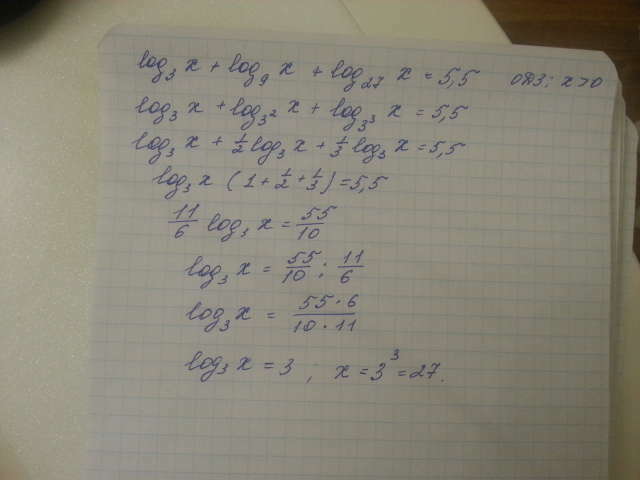 log₃ x + log₉ x + log₂₇ x = 5,5 ОДЗ: x > 0
log₃ x + log₃² x + log₃³ x = 5,5
log₃ x + 1/2 log₃ x + 1/3 log₃ x = 5,5
log₃ x (1 + 1/2 + 1/3) = 5,5
11/6 log₃ x = 55/10
log₃ x = 55/10 : 11/6
log₃ x = 55·6/10·11
log₃ x = 3 ; x = 3³ = 27.